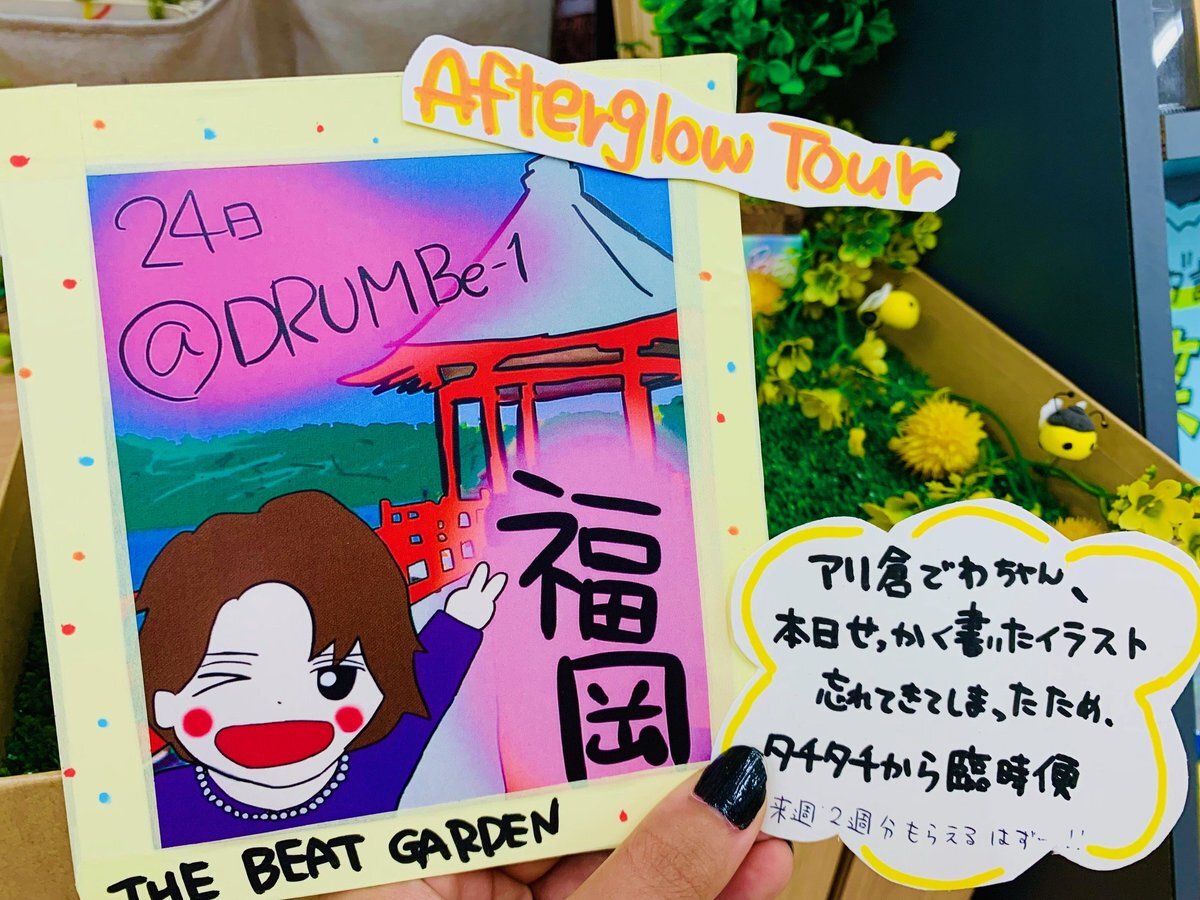 Afterglow Tour
24日
@DRUM Be-1
福岡
THE BEAT GARDEN
アリ倉でわちゃん、
本日せっかく書いたイラスト
忘れてきてしまったため、
タチタチから臨時便
来週2週分もらえるはず…!!